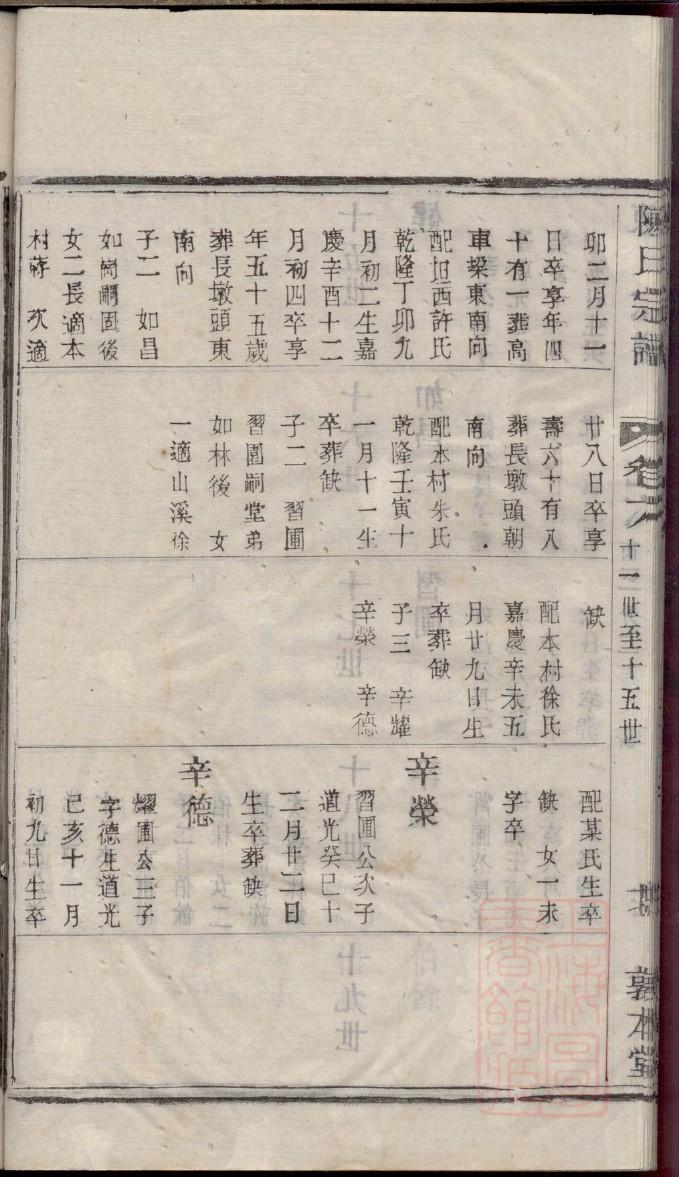 陳氏宗譜
卷六
十一世至十五世
敦本堂
卯二月十一
日卒享年四
十有一葬高
車梁東南向
配坦西許氏
乾隆丁卯九
月初二生嘉
慶辛酉十二
月初四卒享
年五十五歲
葬長墩頭東
南向
子二 如昌
如崗嗣固後
女二長適本
村蔣 次適
廿八日卒享
壽六十有八
葬長墩頭朝
南向
配本村朱氏
乾隆壬寅十
一月十一生
卒葬缺
子二 習圃
習園嗣堂弟
如林後 女
一適山溪徐
缺
配本村徐氏
嘉慶辛未五
月廿九日生
卒葬缺
子三 辛耀
辛榮 辛德
配某氏生卒
缺 女一未
字卒
辛榮
習圃公次子
道光癸巳十
二月廿二日
生卒葬缺
辛德
耀圃公三子
字德生道光
己亥十一月
初九日生卒